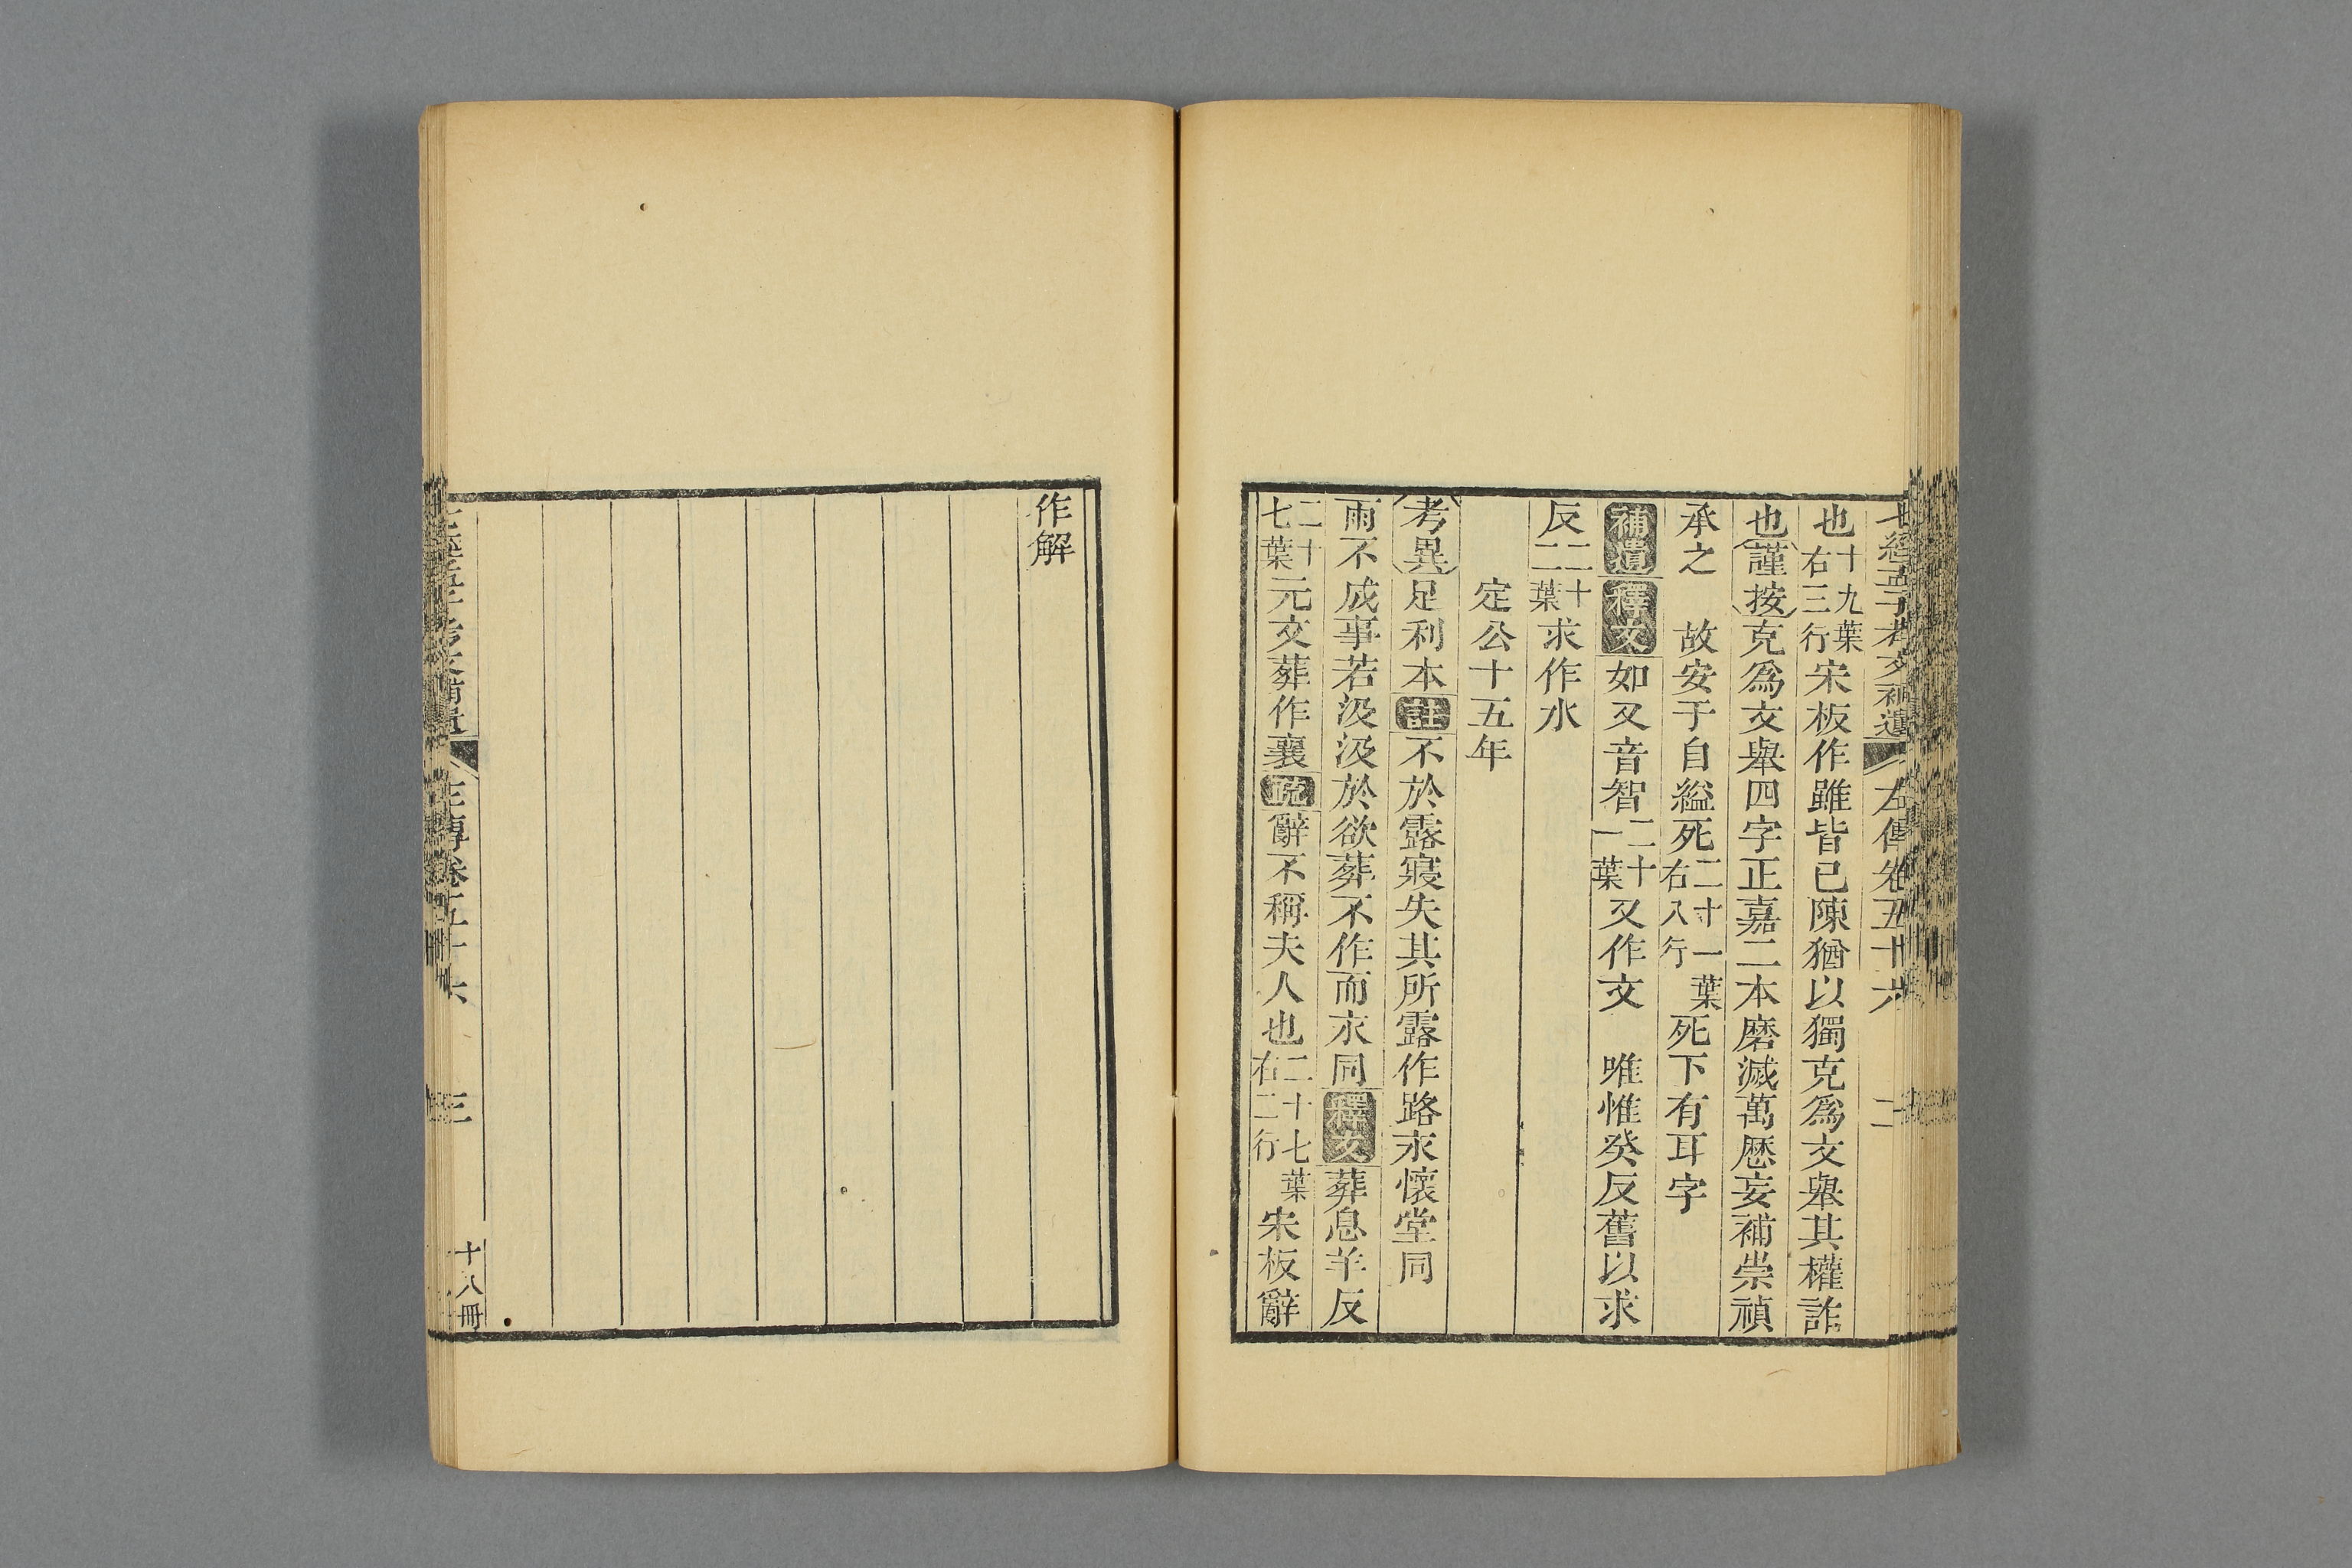 七經孟子考文補遺 左傳卷五十六 二
也十九葉右三行宋板作雖皆已陳猶以獨克爲文舉其權詐
也謹按克爲文舉四字正嘉二本磨滅萬曆妄補崇禎
承之 故安于自縊死二十一葉右八行死下有耳字
補遺釋文如又音智二十一葉又作文 唯惟癸反舊以求
反二十二葉求作水
定公十五年
考異足利本註不於露寢失其所露作路永懷堂同
雨不成事若汲汲於欲葬不作而永同釋文葬息羊反
二十七葉元文葬作襄疏辭不稱夫人也二十七葉右二行宋板辭
作解
七經孟子考文補遺 左傳卷五十六 三 十八冊